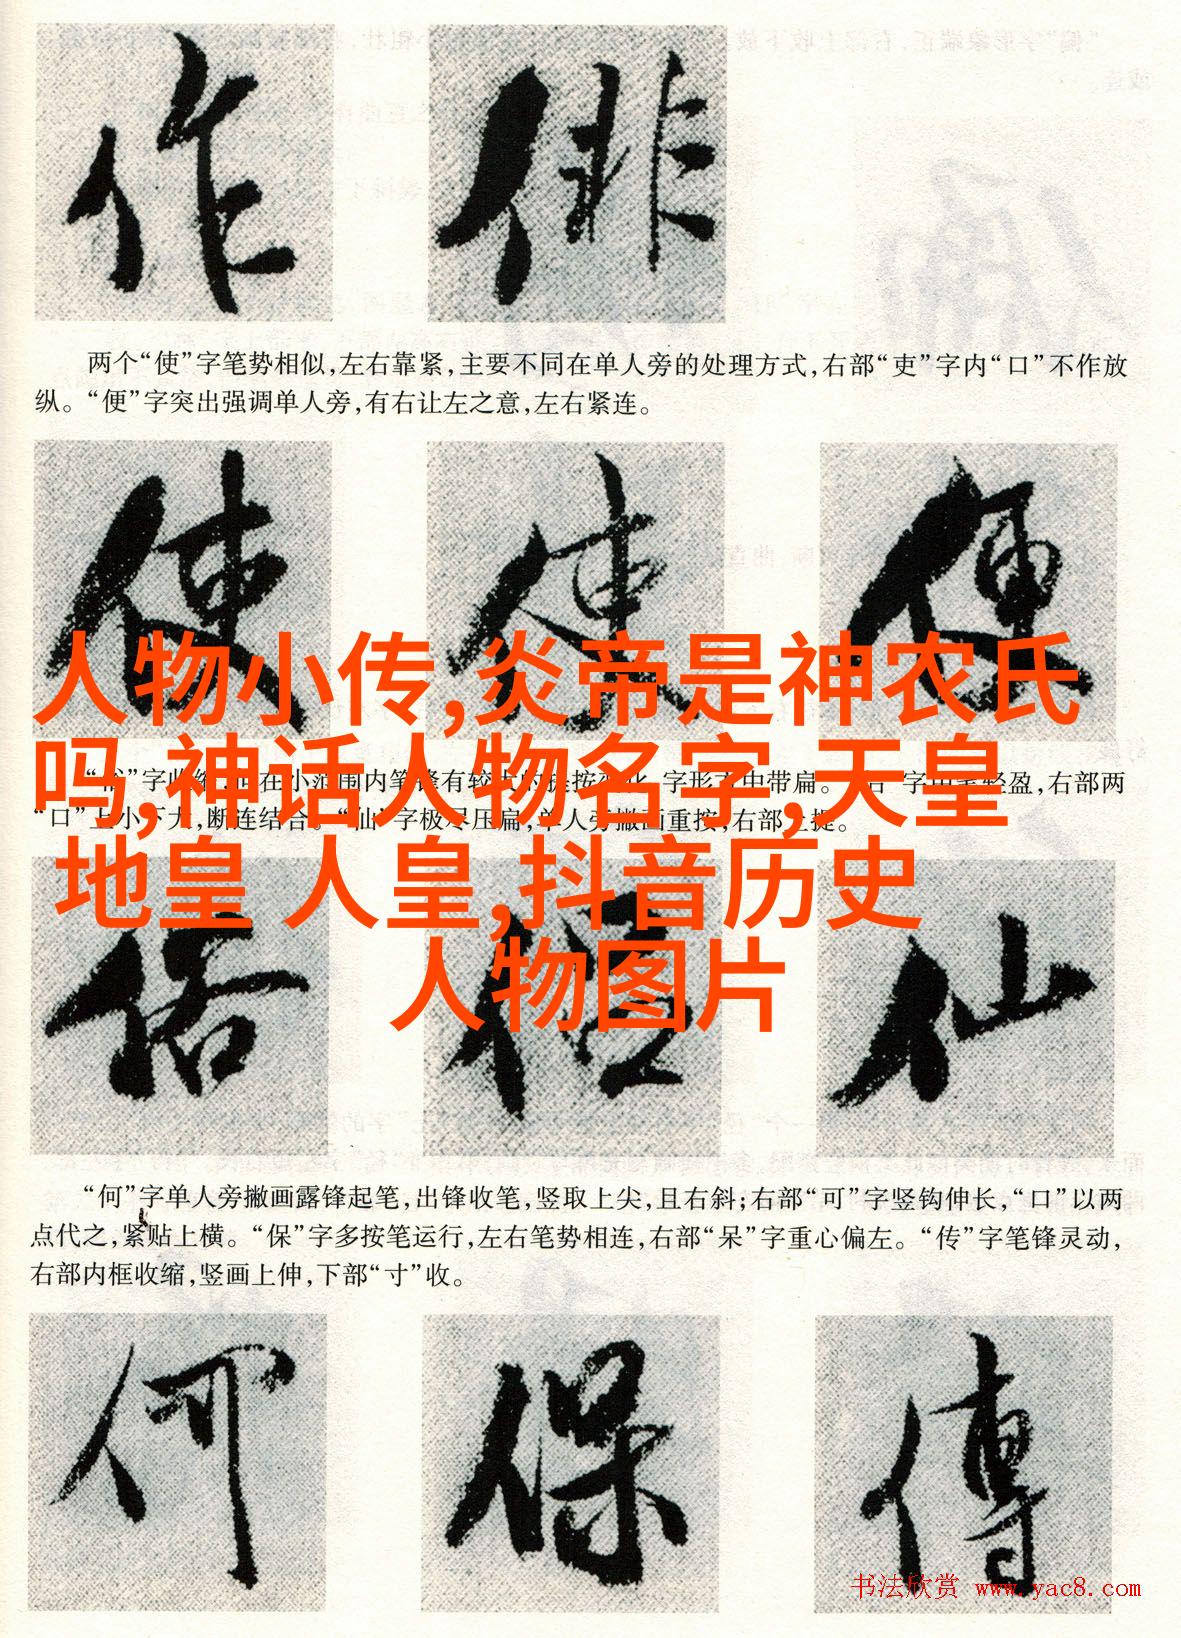 作 俳
两个“使”字笔势相似,左右靠紧,主要不同在单人旁的处理方式,右部“吏”字内“口”不作放
纵。“便”字突出强调单人旁,有右让左之意,左右紧连。
使 使 便
人物小传,炎帝是神农氏
吗,神话人物名字,天皇
地皇 人皇,抖音历史
人物图片
字形方中带扁。
轻盈,右部两
“口”上小下大,断连结合。“仙”字极尽压扁,单人旁撇画重按,右部上提。
俗 仙
“何”字单人旁撇画露锋起笔,出锋收笔,竖取上尖,且右斜;右部“可”字竖钩伸长,“口”以两
点代之,紧贴上横。“保”字多按笔运行,左右笔势相连,右部“呆”字重心偏左。“传”字笔锋灵动,
右部内框收缩,竖画上伸,下部“寸”收。
何 保 傳
书法欣赏 www.yac8.com